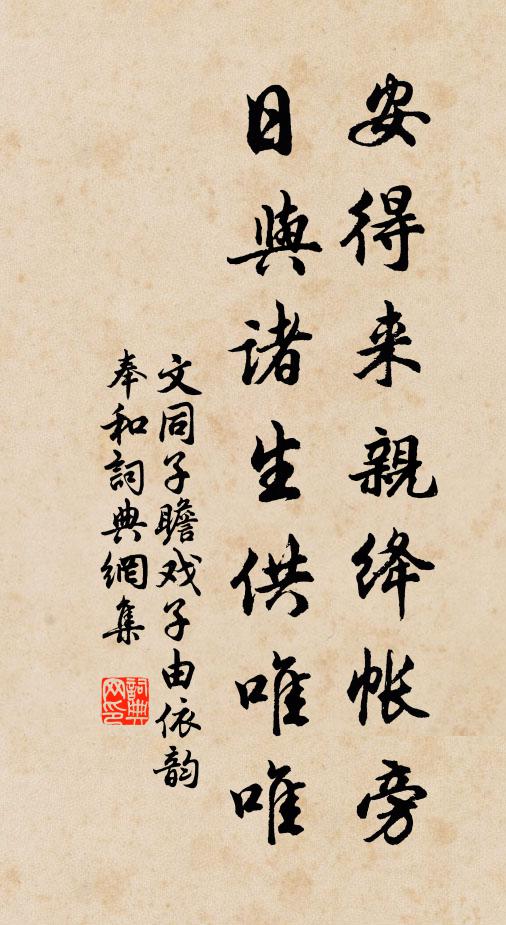 安得来親绛帐旁
日與诸生供唯唯
文同子瞻戏子由依韵
奉和詞典網集
詞典网印